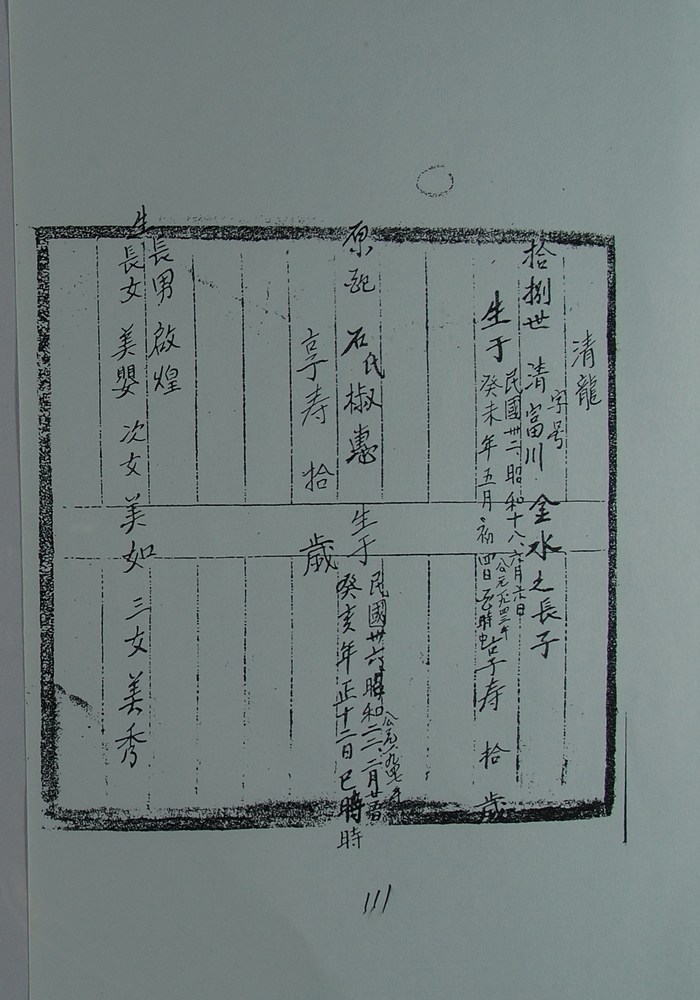 清龍
字号
拾捌世 清富川 金水之長子
民國卅二 昭和十八 六月六日
公元一九四三年
生于癸未年五月初四日 時 享寿 拾 歲
原配 石氏椒惠 生于
民國卅六 昭和二二 二月
公元一九四七年
癸亥年正十二日巳時
時
享寿 拾 歲
長男 啟煌
生長女 美嬰 次女 美如 三女 美秀
111